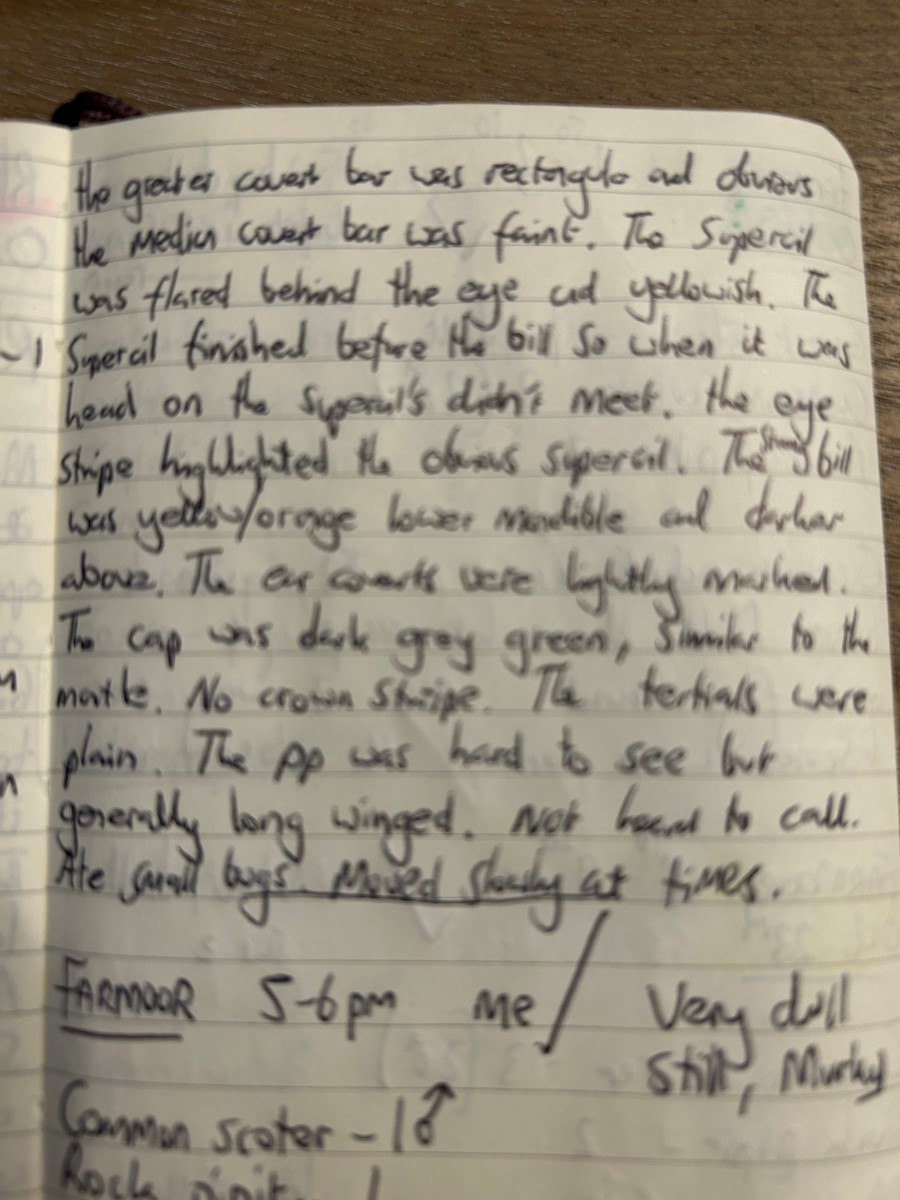 the greater covert bar was rectangule and obvious
the Median covert bar was faint. The Supercil
was flared behind the eye and yellowish. The
Supercil finished before the bill so when it was
head on the Supercil's didn't meet. the eye
stripe highlighted the obvious supercil. The strong bill
was yellow/orange lower mandible and darker
above. The ear coverts were lightly marked.
The cap was dark grey green, Similar to the
mantle. No crown Stripe. The tertials were
plain. The pp was hard to see but
generally long winged. Not heard to call.
Ate small bugs. Moved slowly at times.
FARMOOR 5-6pm me / Very dull
Still, Murky
Common scoter - 1 ♂
Rock pipit - 1